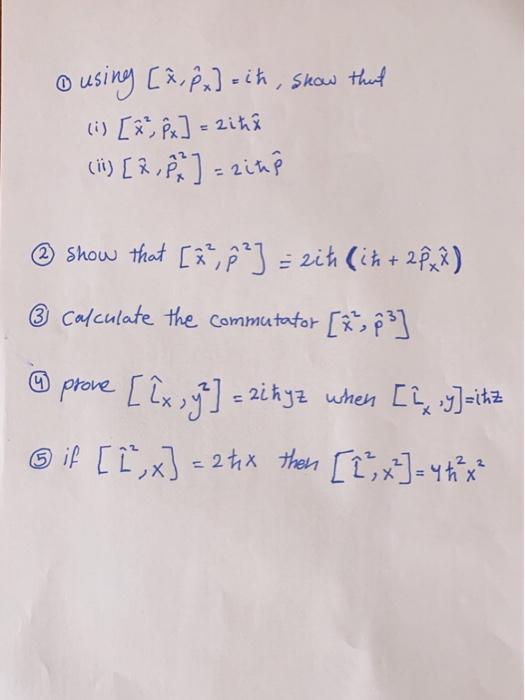 ① using [x̂, p̂ₓ] = iħ, show that
(i) [x̂², p̂ₓ] = 2iħx̂
(ii) [x̂, p̂ₓ²] = 2iħp̂
② show that [x̂², p̂²] = 2iħ (iħ + 2p̂ₓx̂)
③ Calculate the commutator [x̂², p̂³]
④ prove [L̂ₓ, y²] = 2iħyz when [L̂ₓ, y] = iħz
⑤ if [L̂², x] = 2ħx then [L̂², x²] = 4ħ²x²